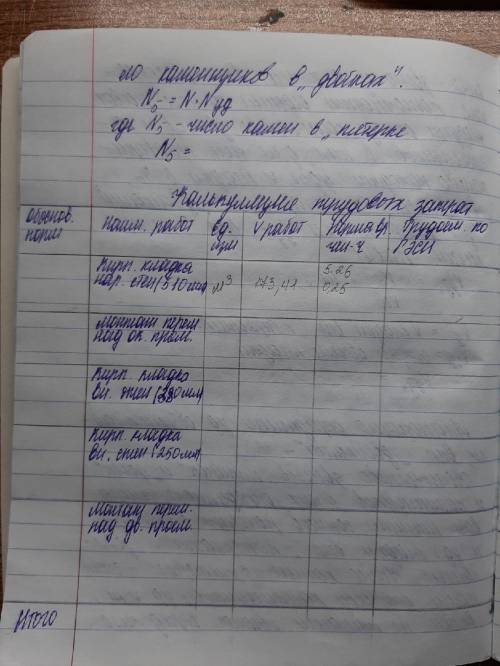 ло каменщиков в „двойках".
N₅ = N · Nуд
где N₅ - число камен в „пятерке
N₅ =
Калькуляция трудовых затрат
Обоснов. норм
Наим. работ
Ед. изм
V работ
Норма вр. чел-ч
Трудоем по ГЭСН
Кирп. кладка
нар. стен (510мм)
м³
173,41
5.26
0,25
Монтаж перем.
над ок. проем.
Кирп. кладка
вн. стен (380мм)
Кирп. кладка
вн. стен (250мм)
Монтаж перем.
над дв. проем.
Итого